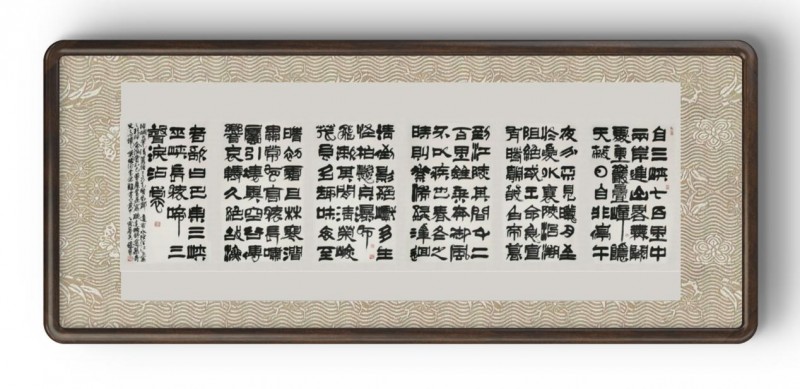 自三峽七百里中
兩岸連山略無闕
處重巖疊嶂隱
天蔽日自非亭午
夜分不見曦月至
於夏水襄陵沿溯
阻絕或王命急宣
有時朝發白帝暮
到江陵其間千二
百里雖乘奔御風
不以疾也春冬之
時則素湍綠潭迴
清倒影絕巘多生
怪柏懸泉瀑布
飛漱其間清榮峻
茂良多趣味每至
晴初霜旦林寒澗
肅常有高猿長嘯
屬引淒異空谷傳
響哀轉久絕故漁
者歌曰巴東三峽
巫峽長猿啼三
聲淚沾裳